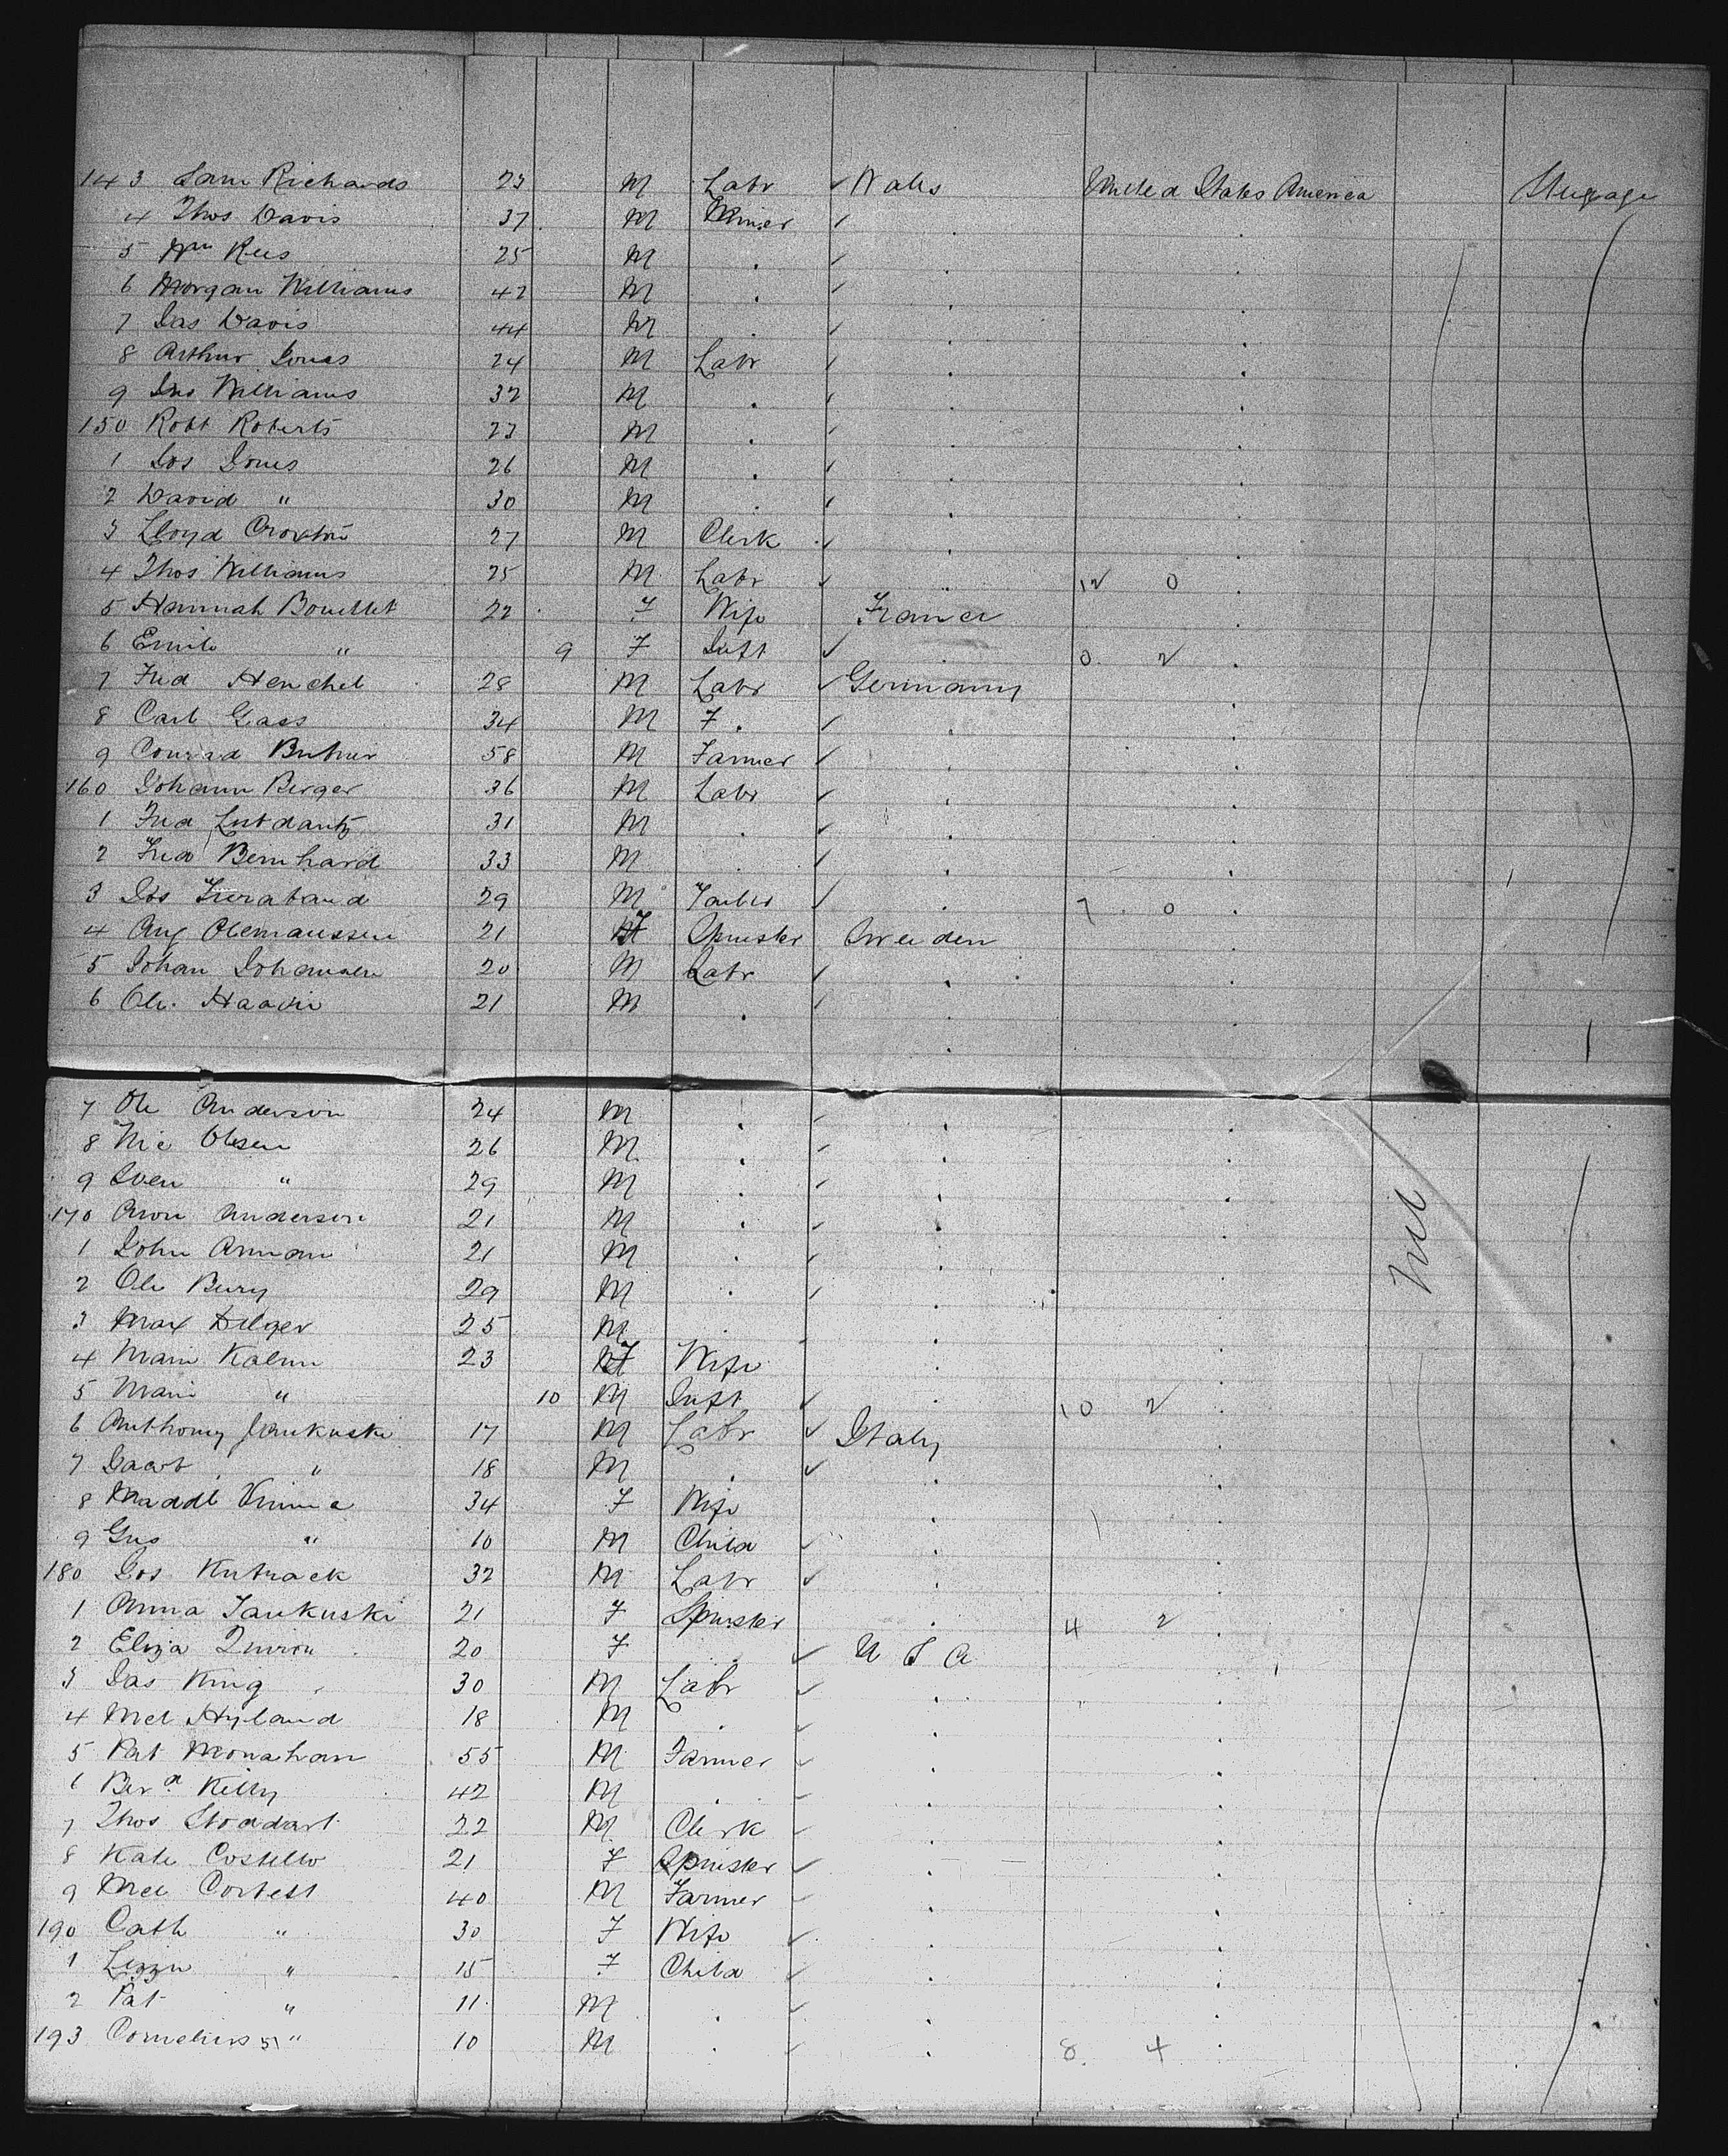 143 Sam Richards 23 M Labr ✓ Wales United States America Steerage
4 Thos Davis 37 M Miner ✓ . .
5 Wm Rees 25 M . ✓ . .
6 Morgan Williams 42 M . ✓ . .
7 Jas Davis 44 M . ✓ . .
8 Arthur Jones 24 M Labr ✓ . .
9 Jno Williams 32 M . ✓ . .
150 Robt Roberts 23 M . ✓ . .
1 Jos Jones 26 M . ✓ . .
2 David " 30 M . ✓ . .
3 Lloyd Croxton 27 M Clerk ✓ . .
4 Thos Williams 25 M Labr ✓ . 12 0 .
5 Hannah 22 F Wife France .
6 Emile " 9 F Inft ✓ . 0 2 .
7 Fred Henchel 28 M Labr ✓ Germany .
8 Carl Gass 34 M . ✓ . .
9 Conrad 58 M Farmer ✓ . .
160 Johann Berger 36 M Labr ✓ . .
1 Fred 31 M . ✓ . .
2 Fred Bernhard 33 M . ✓ . .
3 Jos 29 M ✓ . 7 0 .
4 Aug 21 F Spinster Sweden .
5 Johan Johansen 20 M Labr ✓ . .
6 Ole 21 M . ✓ . .
7 Ole Anderson 24 M . ✓ . .
8 Nic Olsen 26 M . ✓ . .
9 Sven " 29 M . ✓ . .
170 Aron Anderson 21 M . ✓ . . Nil
1 John 21 M . ✓ . .
2 Ole 29 M . ✓ . .
3 Max 25 M . . .
4 Marie 23 F Wife . .
5 " 10 M Inft ✓ . 10 2 .
6 Anthony Jankuski 17 M Labr ✓ Italy .
7 Jacob " 18 M . ✓ . .
8 34 F Wife . .
9 Gus " 10 M Child ✓ . .
180 Jos 32 M Labr ✓ . .
1 Anna Jankuski 21 F Spinster . 4 2 .
2 Eliza 20 F . ✓ U S A .
3 Jas King 30 M Labr ✓ . .
4 Mcl Hyland 18 M . ✓ . .
5 Pat Monahan 55 M Farmer ✓ . .
6 Kelly 42 M . ✓ . .
7 Thos Stoddart 22 M Clerk ✓ . .
8 Kate Costello 21 F Spinster ✓ . .
9 Mcl Corbett 40 M Farmer ✓ . .
190 Cath " 30 F Wife ✓ . .
1 Lizzie " 15 F Child ✓ . .
2 Pat " 11 M . ✓ . .
193 Cornelius " 10 M . ✓ . 8 4 .